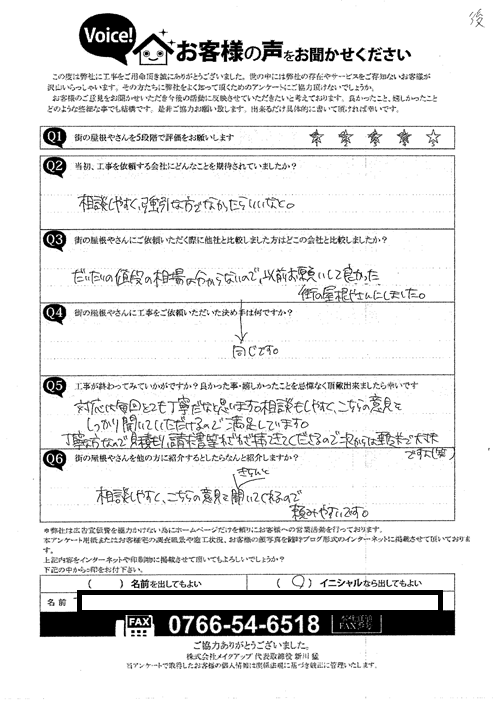 後
Voice!
お客様の声をお聞かせください
この度は弊社に工事をご用命頂き誠にありがとうございました。世の中には弊社の存在やサービスをご存知ないお客様が
沢山いらっしゃいます。その方たちに弊社をよく知って頂くためのアンケートにご協力頂けないでしょうか。
お客様のご意見をお聞かせいただき今後の活動に反映させていただきたいと考えております。良かったこと、嬉しかったこと
どのような些細な事でも結構です。是非ご協力お願い致します。出来るだけ具体的に書いて頂ければ幸いです。
Q1 街の屋根やさんを5段階で評価をお願いします ★ ★ ★ ★ ☆
Q2 当初、工事を依頼する会社にどんなことを期待されていましたか?
相談しやすく、強引な方でなかったらいいなと。
Q3 街の屋根やさんにご依頼いただく際に他社と比較しました方はどこの会社と比較しましたか?
だいたいの値段の相場は分からないので、以前お願いして良かった
街の屋根やさんにしました。
Q4 街の屋根やさんに工事をご依頼いただいた決め手は何ですか?
同じです。
Q5 工事が終わってみていかがですか?良かった事・嬉しかったことを忌憚なく頂戴出来ましたら幸いです
対応は毎回とても丁寧だなと思います。相談もしやすく、こちらの意見を
しっかり聞いていただけるので満足しています。
丁寧な方なので見積もり、請求書等
次からは郵送で大丈夫
ですよ(笑)
Q6 街の屋根やさんを他の方に紹介するとしたらなんと紹介しますか?
きちんと
相談しやすく、こちらの意見を聞いてくれるので
頼みやすいです。
※弊社は広告宣伝費を極力かけない為にホームページだけを頼りにお客様への営業活動を行っております。
本アンケート用紙またはお客様宅の調査風景や施工状況、お客様の顔写真を随時ブログ形式のインターネットに掲載させて頂いております。
上記内容をインターネットや印刷物に掲載させて頂いてもよろしいでしょうか?
下記の中から○印をお付け下さい。
( ) 名前を出してもよい ( ○ ) イニシャルなら出してもよい
名前
FAX 0766-54-6518
ご協力ありがとうございました。
株式会社メイクアップ 代表取締役 新川 猛
当アンケートで取得したお客様の個人情報は関係法規に基づき厳正に管理いたします。